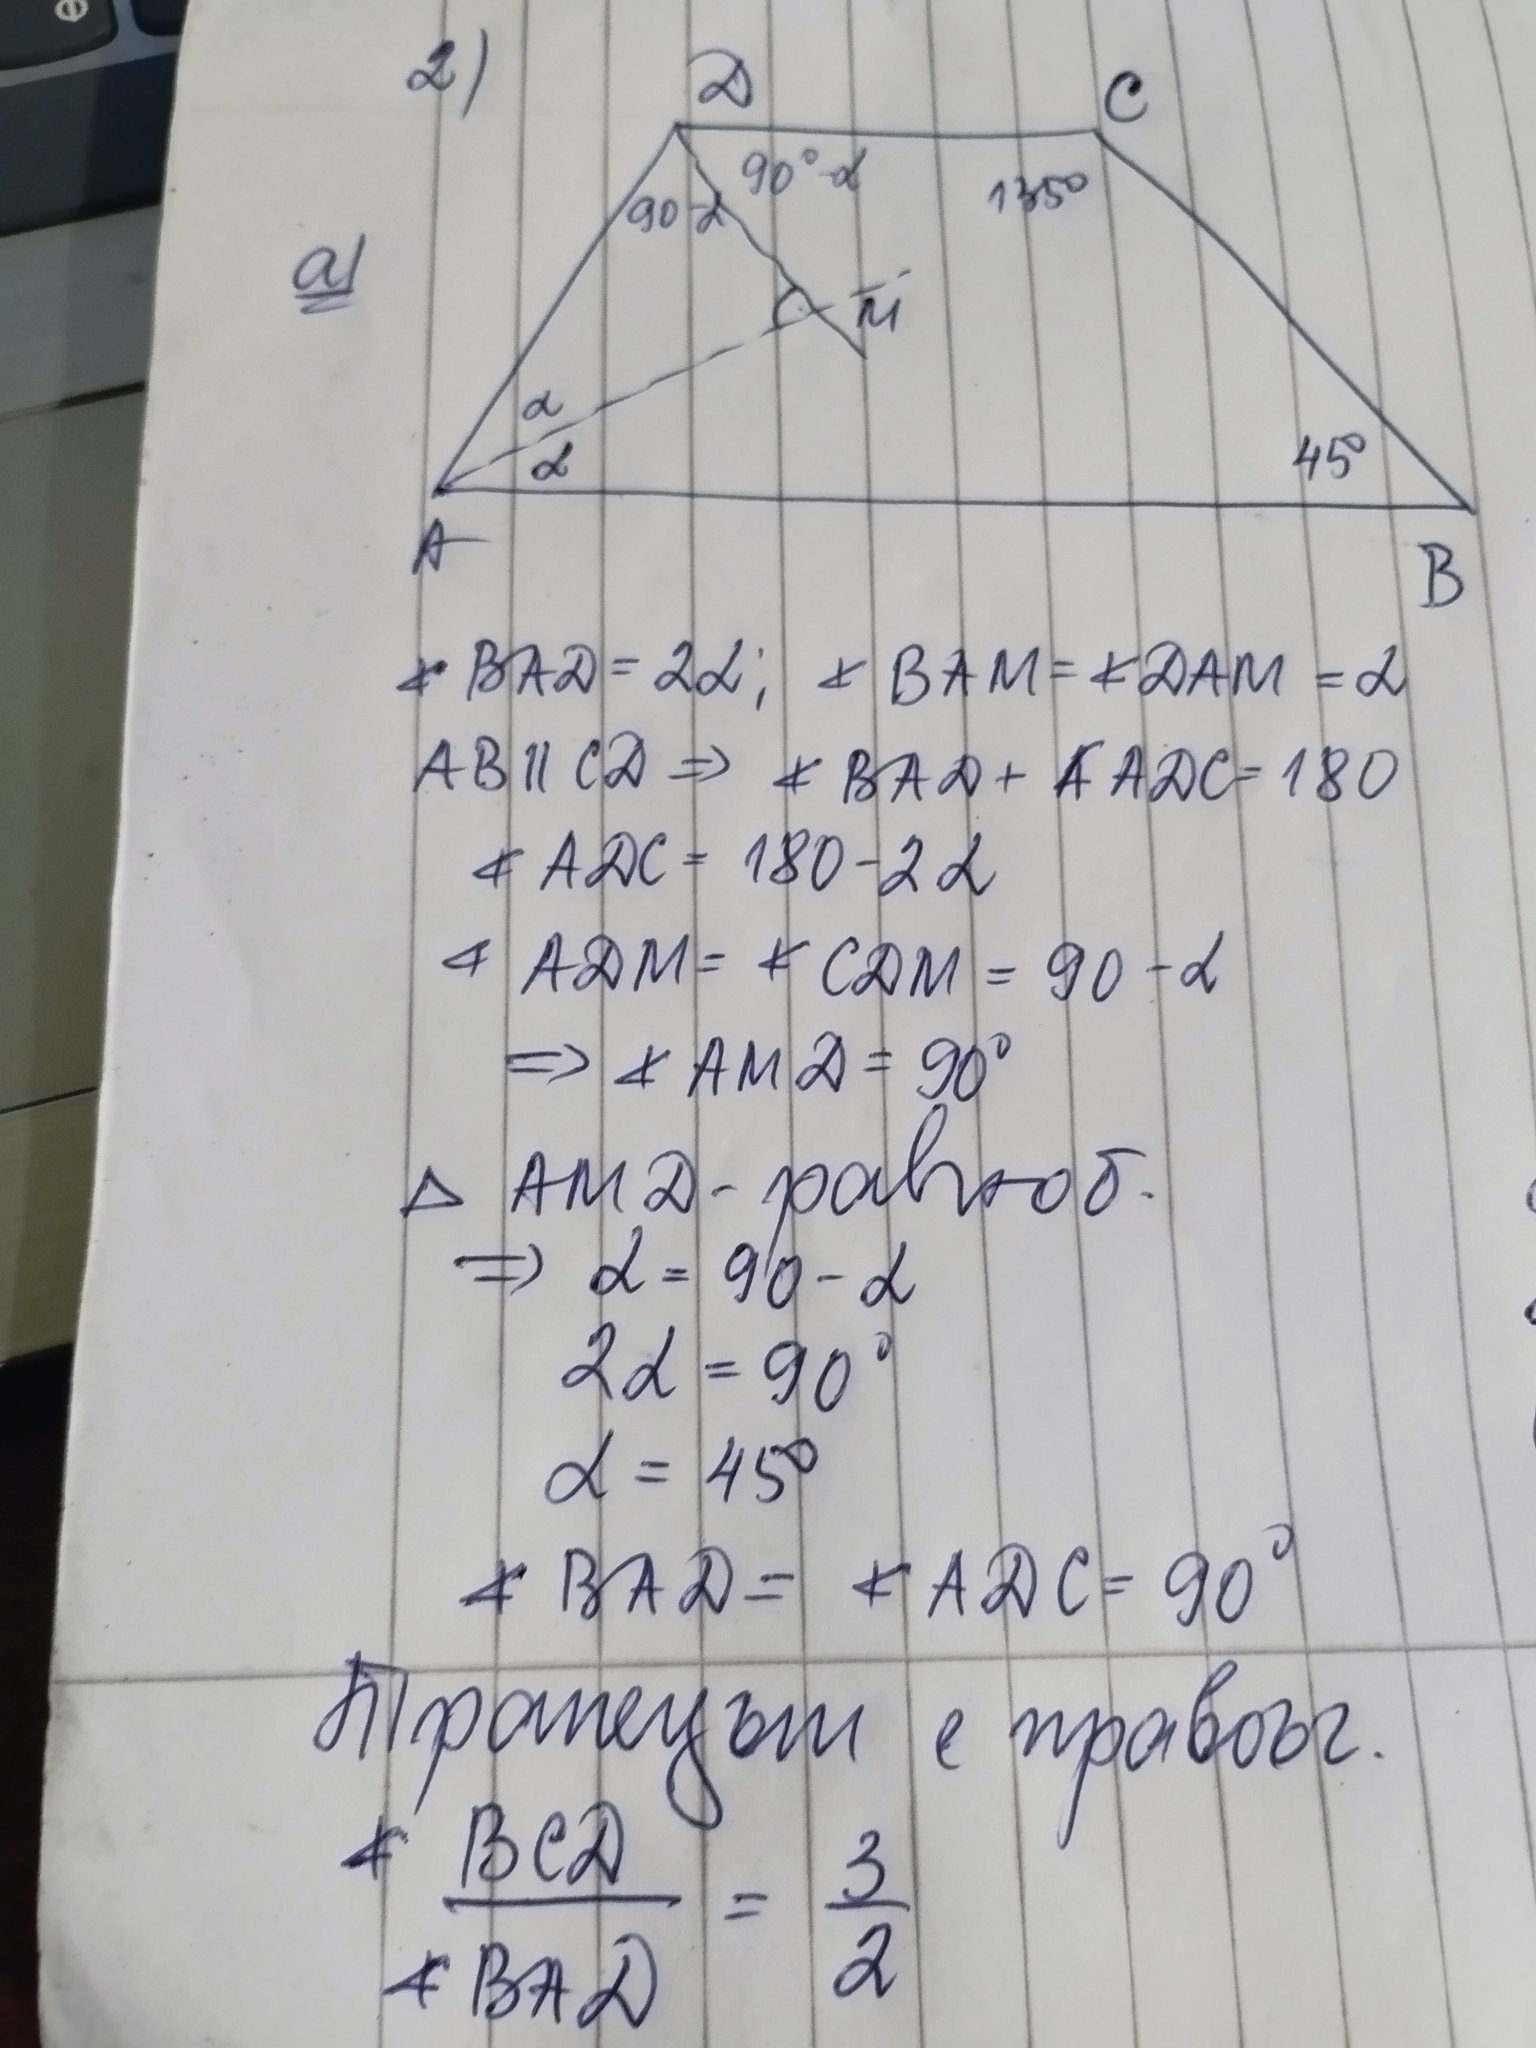 2)
D
C
90°-α
90-α
135°
a)
M
α
α
45°
A
B
∢BAD=2α; ∢BAM=∢DAM=α
AB||CD ⇒ ∢BAD+∢ADC=180
∢ADC=180-2α
∢ADM=∢CDM=90-α
⇒ ∢AMD=90°
△AMD-равноб.
⇒ α=90-α
2α=90°
α=45°
∢BAD=∢ADC=90°
Трапецът е правоъг.
∢BCD/∢BAD = 3/2